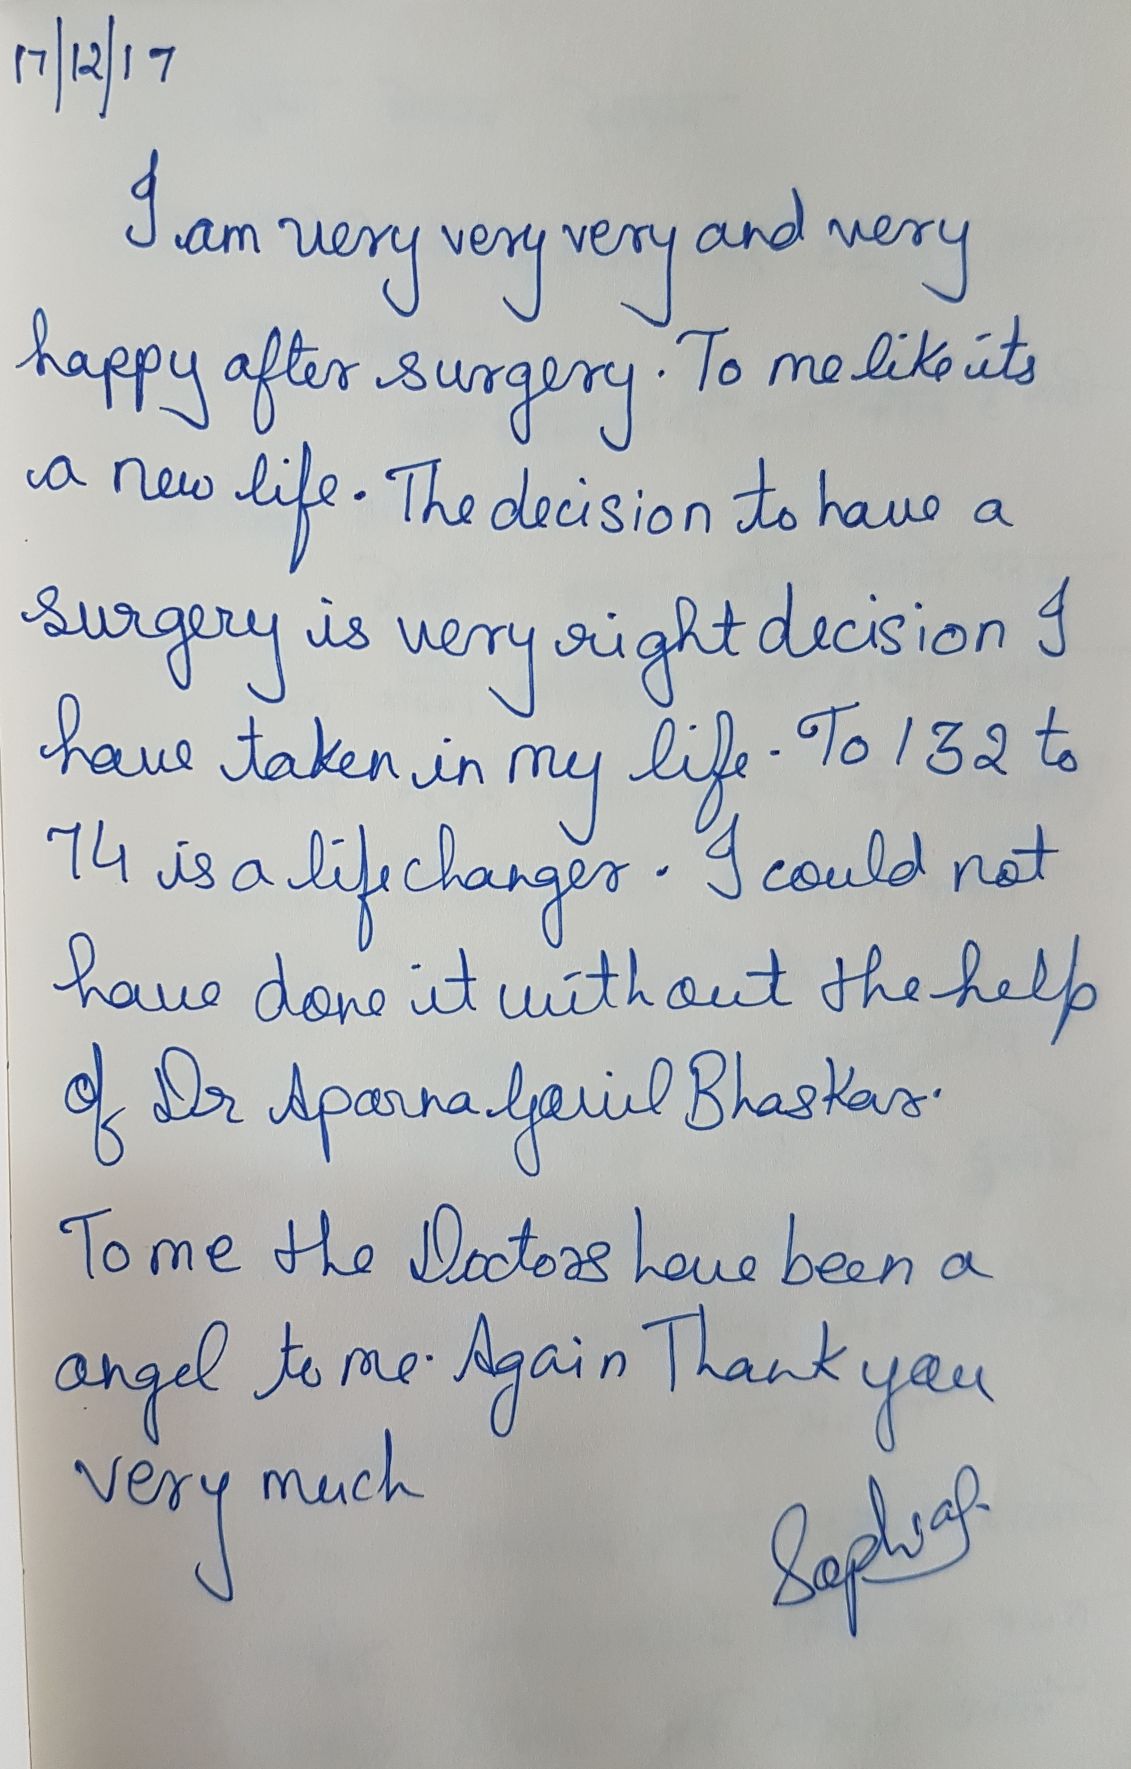 17/12/17
I am very very very and very
happy after surgery. To me like its
a new life. The decision to have a
surgery is very right decision I
have taken in my life. To 132 to
74 is a lifechanger. I could not
have done it without the help
of Dr Aparna Govil Bhaskar.
To me the Doctors have been a
angel to me. Again Thank you
very much